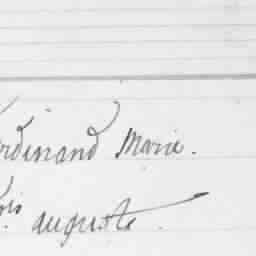 erdinand Marie.
ois auguste.